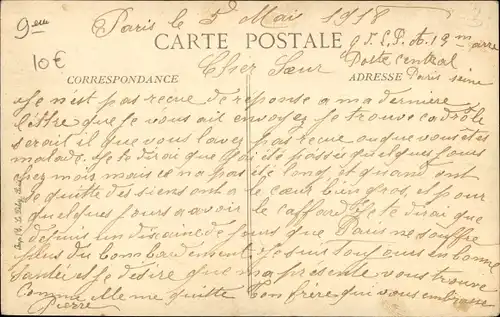 9eme
Paris le 5 Mai 1918
10€
CARTE POSTALE
Poste central
Paris seine
CORRESPONDANCE
ADRESSE
Cher Sœur
Je n'est pas recue de réponse a ma dernière
lettre que je vous ait envoyez je trouve ca drôle
serait il que vous l'avez pas recue ou que vous êtes
malade. Je te dirai que j'ai été passé quelques jours
chez mois mais ce na pas été long, et quand ont
se quitte des siens ont a le cœur bien gros, et pour
quelques jours a avoir le caffard. Je te dirai que
depuis un disaine de jours que Paris ne souffre
plus du bombardement. Je suis toujours en bonne
santée et je désire que ma presente vous trouve
Comme elle me quitte Ton frère qui vous embrasse
Pierre